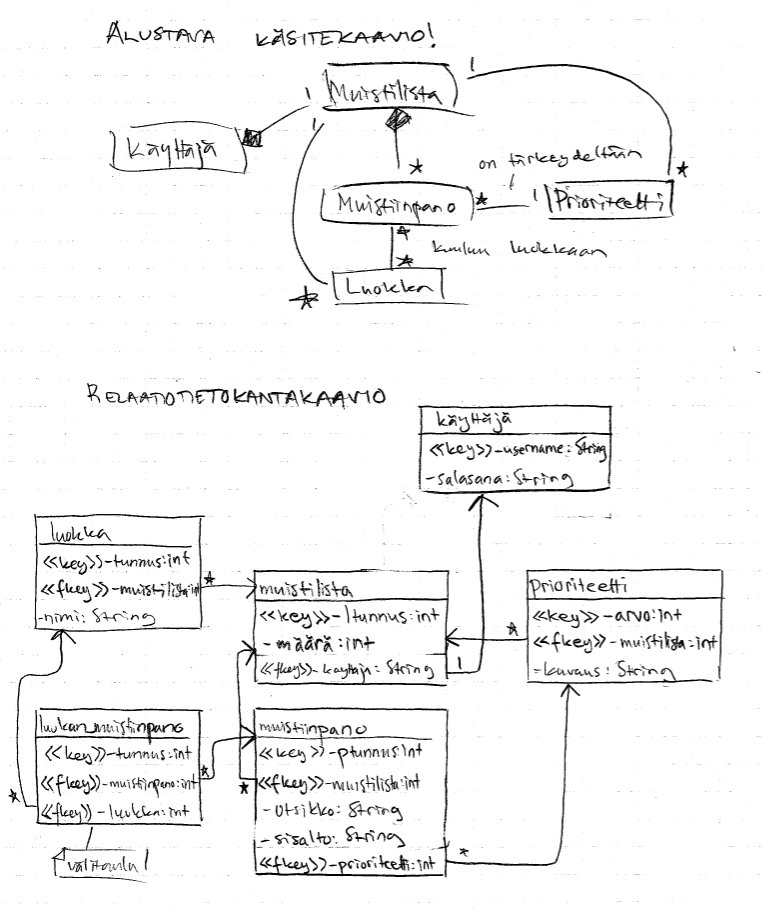 ALUSTAVA KÄSITEKAAVIO!
1 Muistilista 1
1
Käyttäjä
*
on tärkeydeltään
*
Muistiinpano * 1 Prioriteetti
*
kuuluu luokkaan
*
* Luokka
RELAATIOTIETOKANTAKAAVIO
käyttäjä
<<key>>-username: String
-salasana: String
luokka
<<key>>-tunnus:int
<<fkey>>-muistilista:int *
-nimi: String
muistilista
<<key>>-ltunnus:int
-määrä:int
<<fkey>>-kayttaja: String 1
prioriteetti
<<key>>-arvo:int
* <<fkey>>-muistilista:int
-kuvaus: String
luokan_muistiinpano
<<key>>-tunnus:int
<<fkey>>-muistiinpano:int *
* <<fkey>>-luokka:int
välitaulu
muistiinpano
<<key>>-ptunnus:int
* <<fkey>>-muistilista:int
-otsikko: String
-sisalto: String
<<fkey>>-prioriteetti:int *